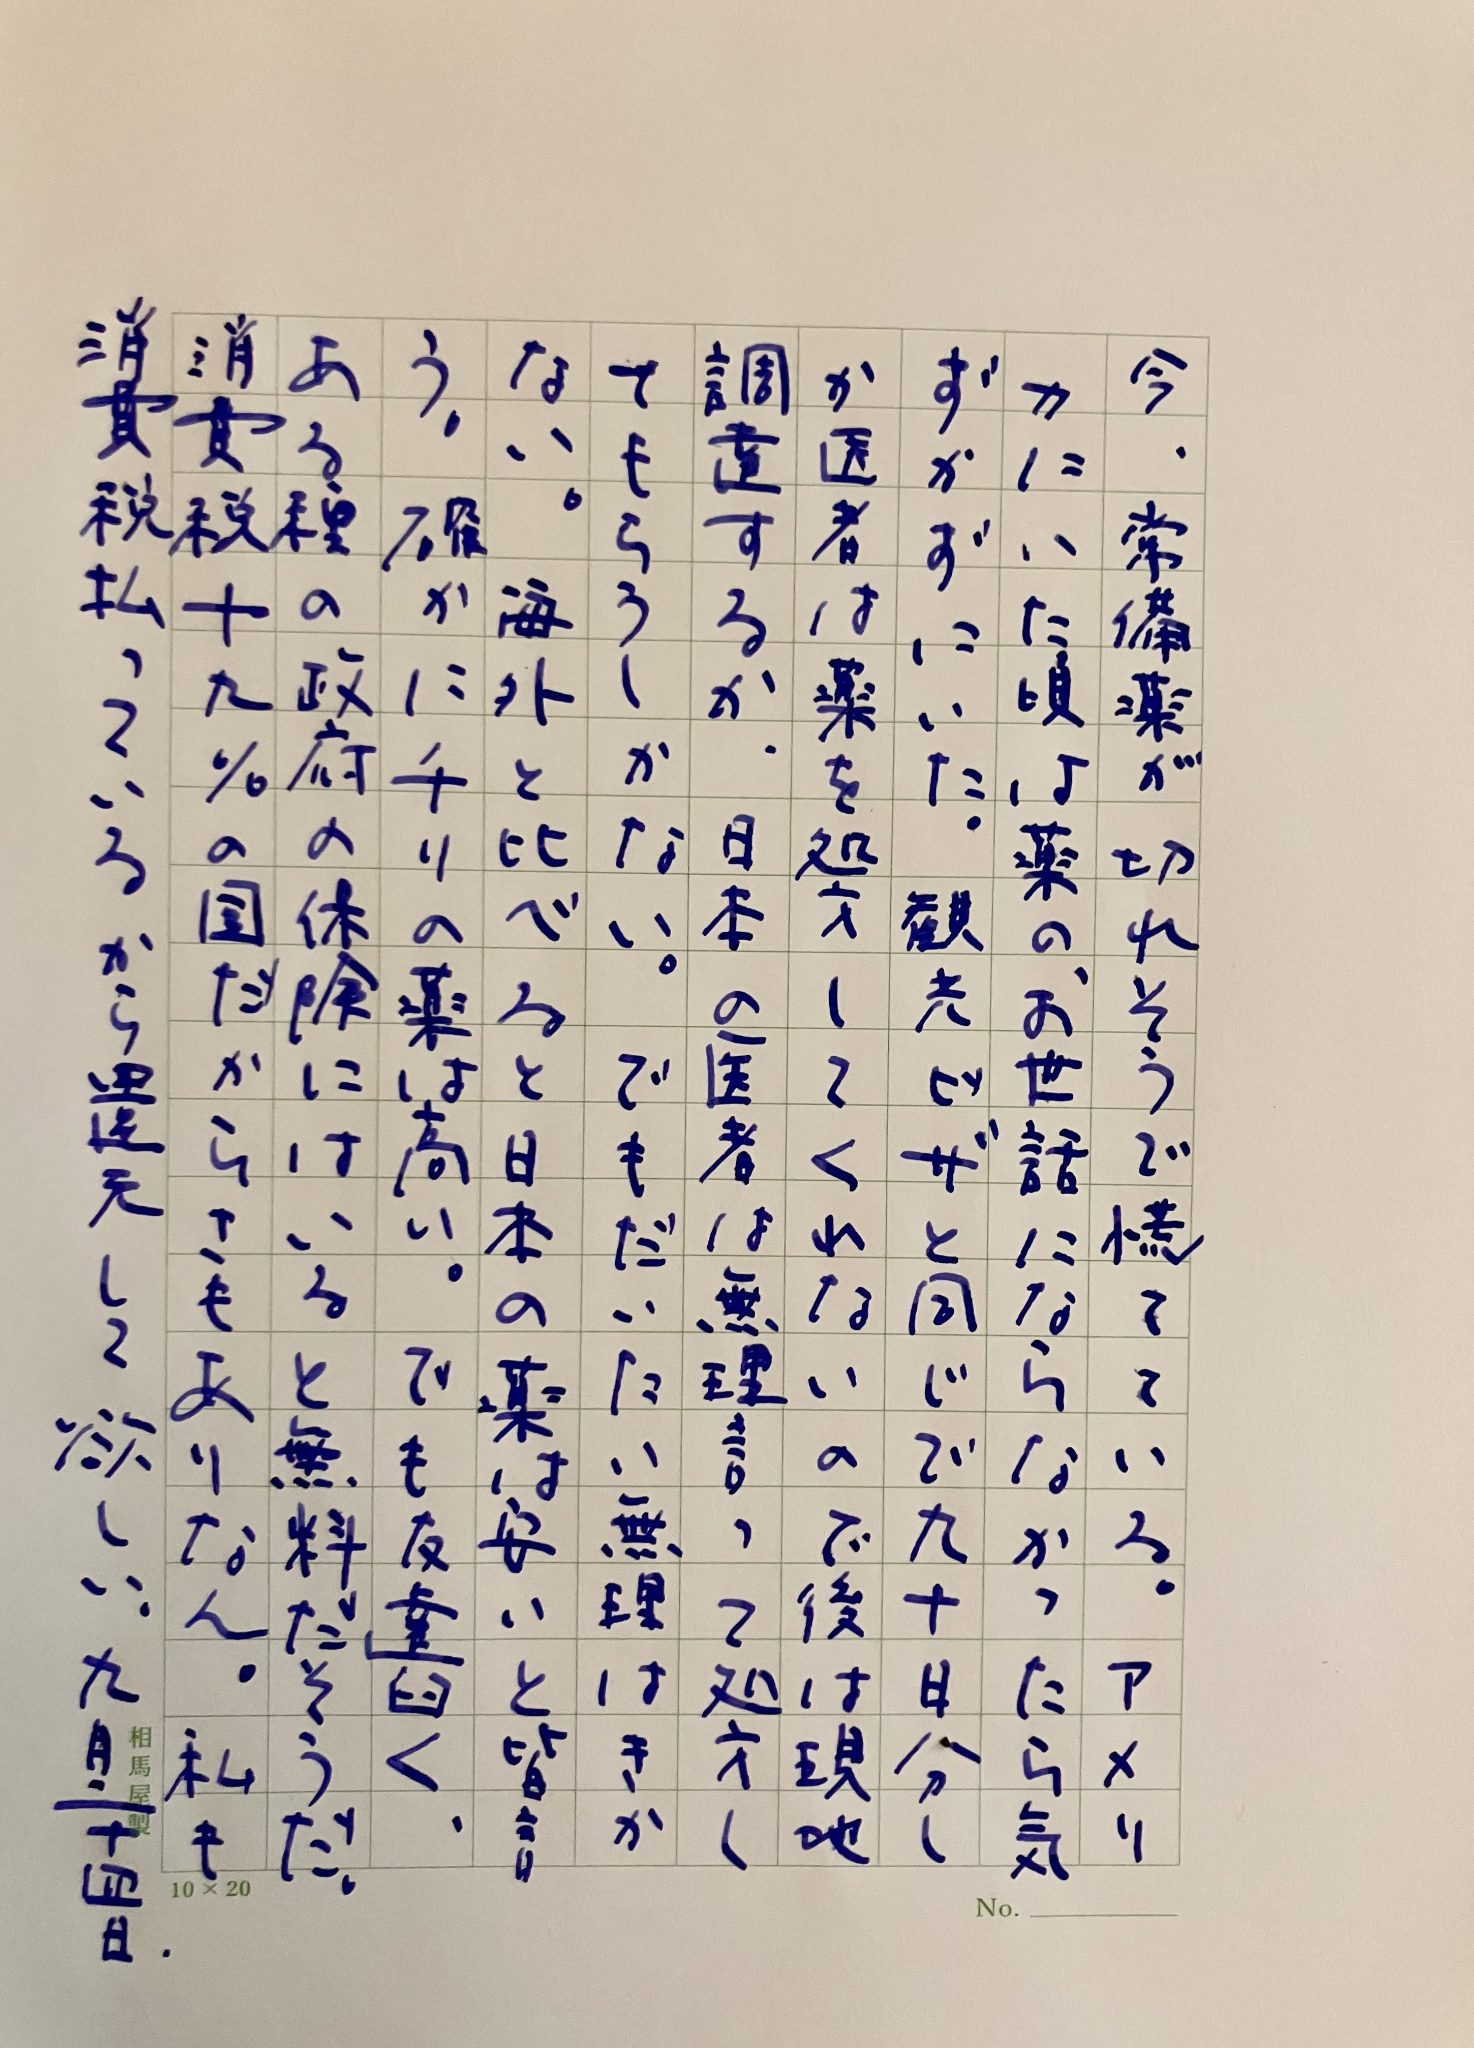 今、常備薬が切れそうで慌てている。アメリ
カにいた頃は薬のお世話にならなかったら気
ずがずにいた。観光ビザと同じで九十日分し
か医者は薬を処方してくれないので後は現地
調達するか、日本の医者は無理言って処方し
てもらうしかない。でもだいたい無理はきか
ない。海外と比べると日本の薬は安いと皆言
う。確かにチリの薬は高い。でも友達曰く、
ある種の政府の保険にはいると無料だそうだ。
消費税十九%の国だからさもありなん。私も
消費税払っているから還元して欲しい。九月二十四日.
相馬屋製
10 × 20
No.